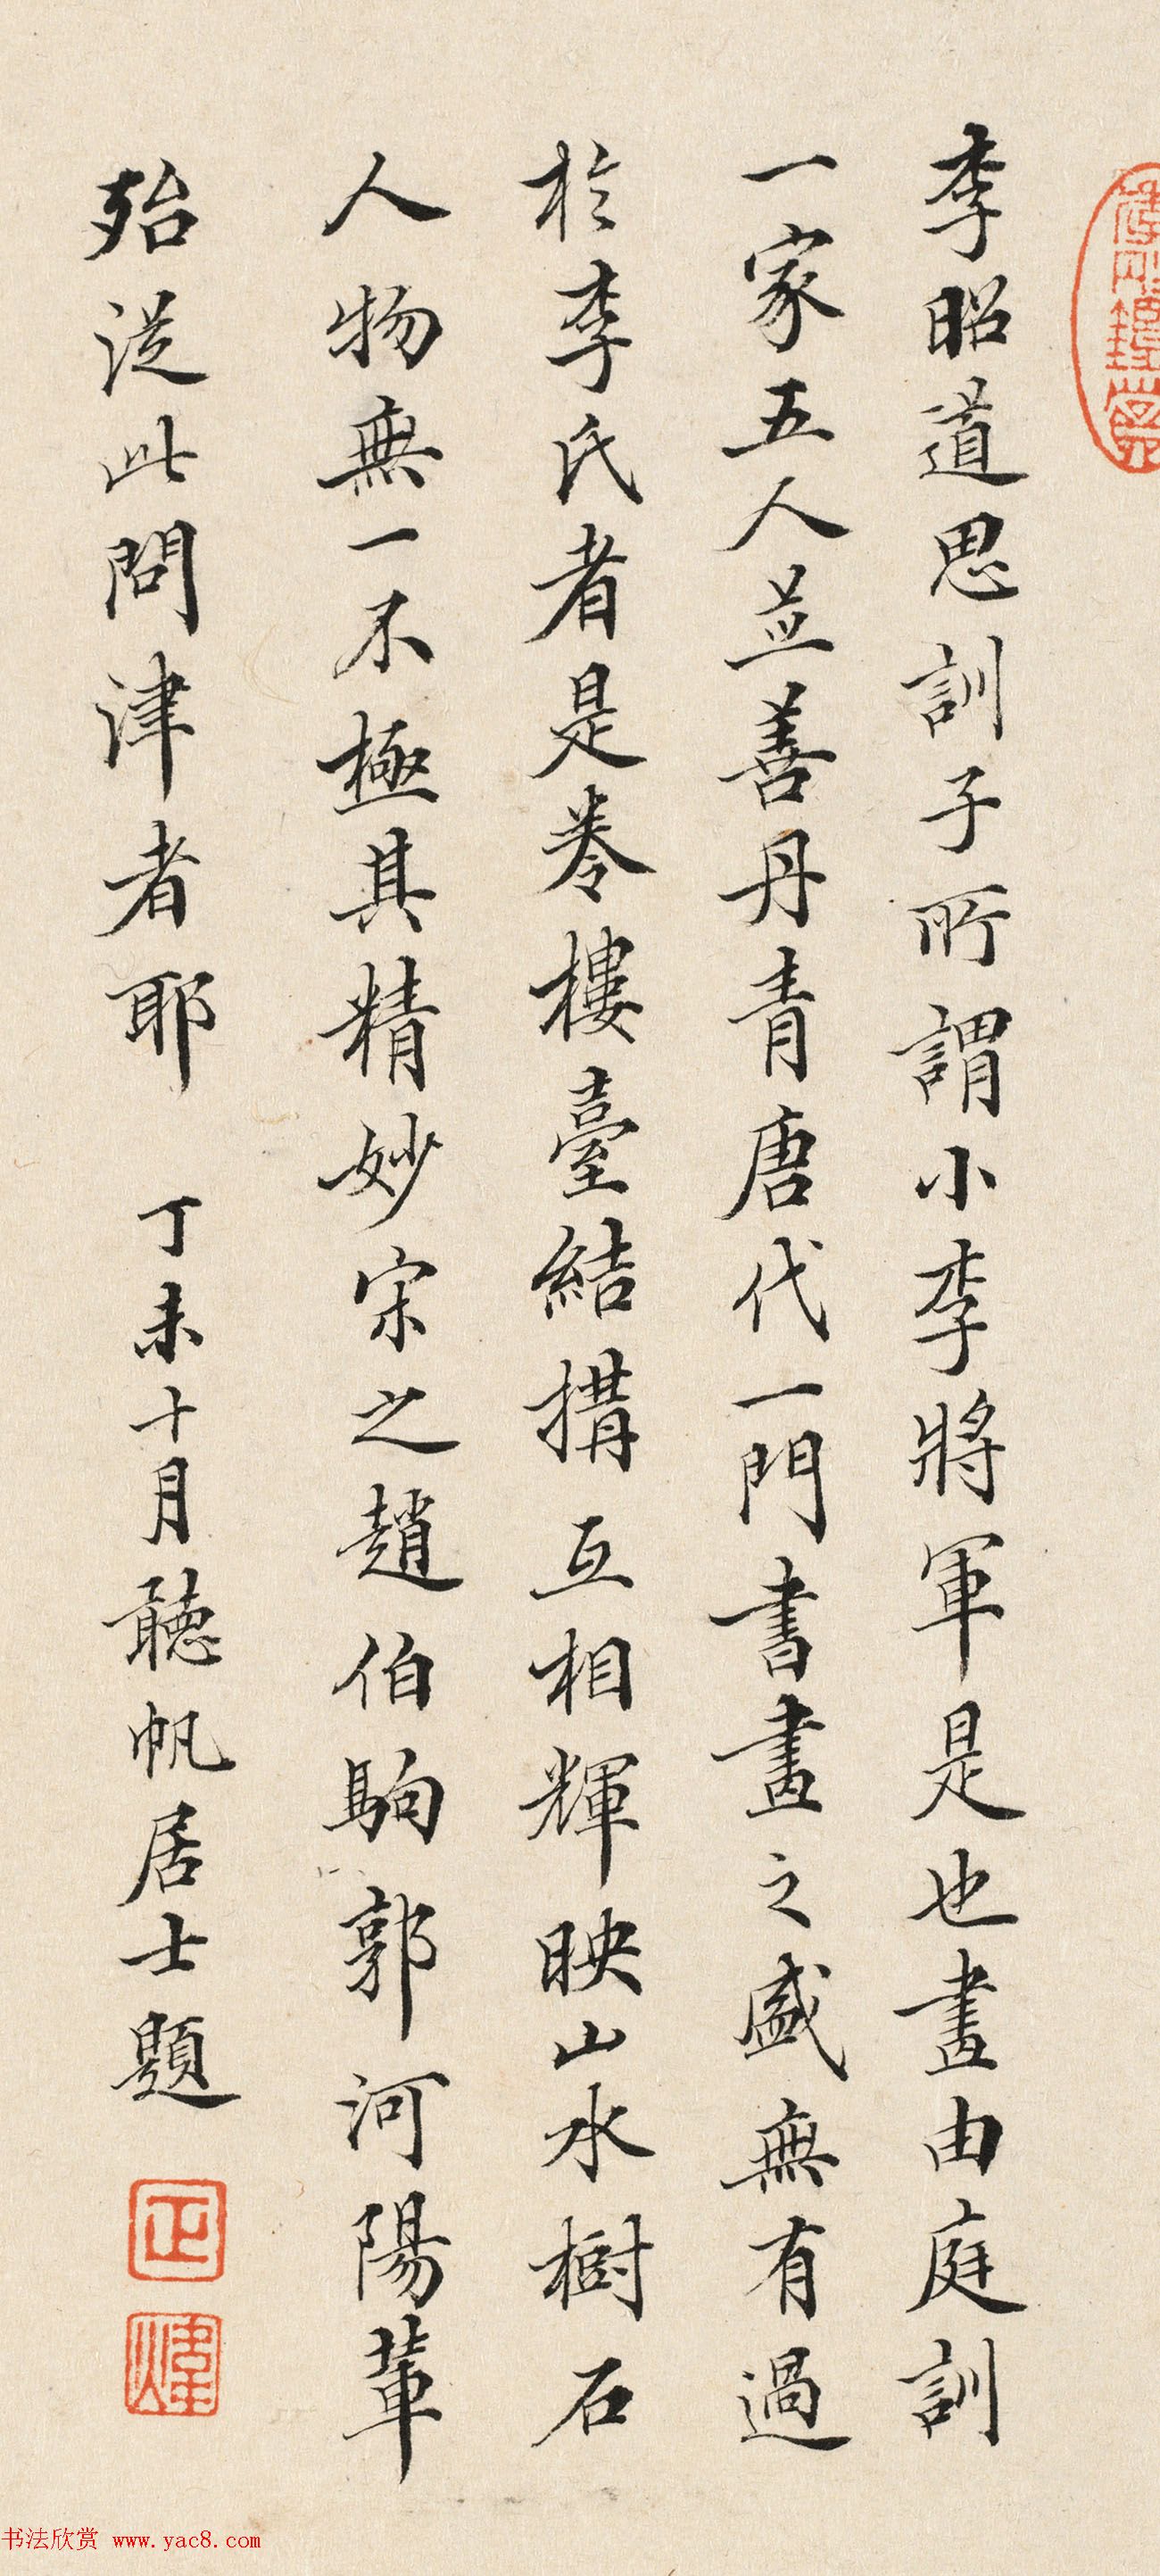 李昭道思訓子所謂小李將軍是也畫由庭訓
一家五人並善丹青唐代一門書畫之盛無有過
於李氏者是卷樓臺結構互相輝映山水樹石
人物無一不極其精妙宋之趙伯駒郭河陽輩
殆從此問津者耶 丁未十月聽帆居士題
正
煒
书法欣赏 www.yac8.com